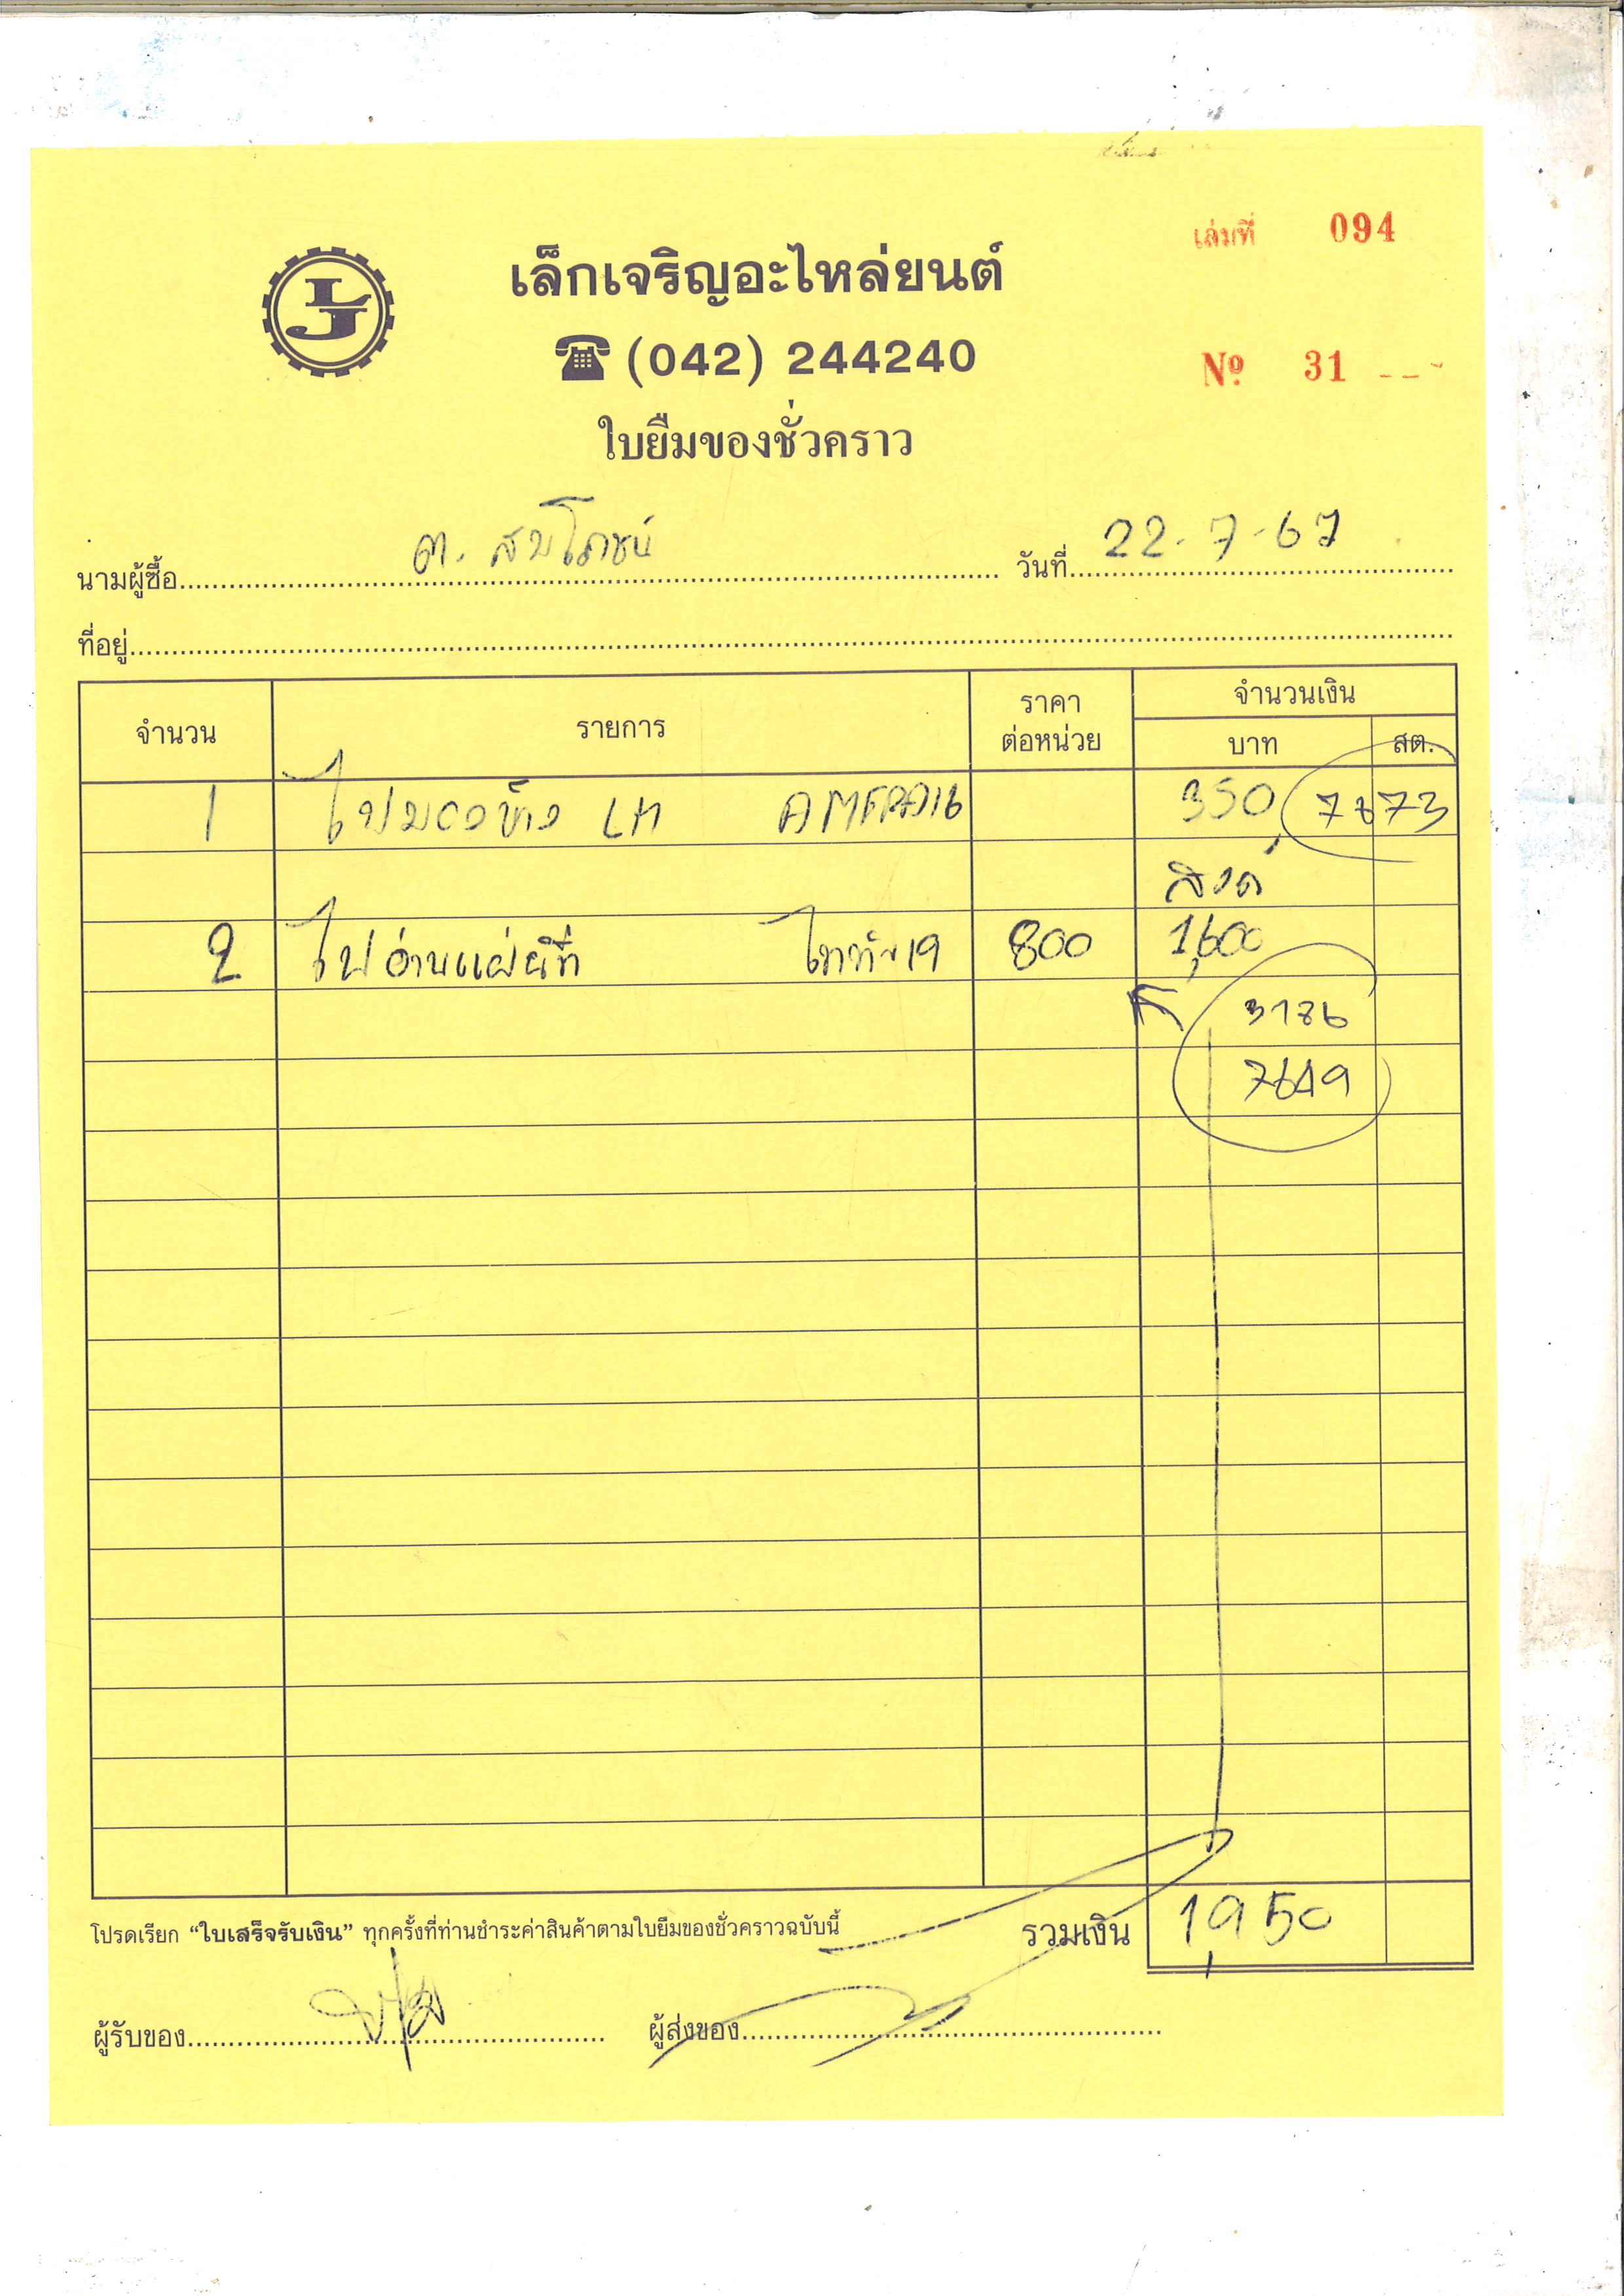 เล่มที่ 094
LJ
เล็กเจริญอะไหล่ยนต์
☎ (042) 244240
Nº 31
ใบยืมของชั่วคราว
นามผู้ซื้อ ต. สมโภชน์ วันที่ 22-7-67
ที่อยู่
จำนวน รายการ ราคาต่อหน่วย จำนวนเงิน
บาท สต.
1 ไฟมองข้าง LH 350 7873
2 ไฟอ่านแผ่นที่ ไททัน19 800 1,600
3786
7649
โปรดเรียก “ใบเสร็จรับเงิน” ทุกครั้งที่ท่านชำระค่าสินค้าตามใบยืมของชั่วคราวฉบับนี้ รวมเงิน 1,950
ผู้รับของ ผู้ส่งของ